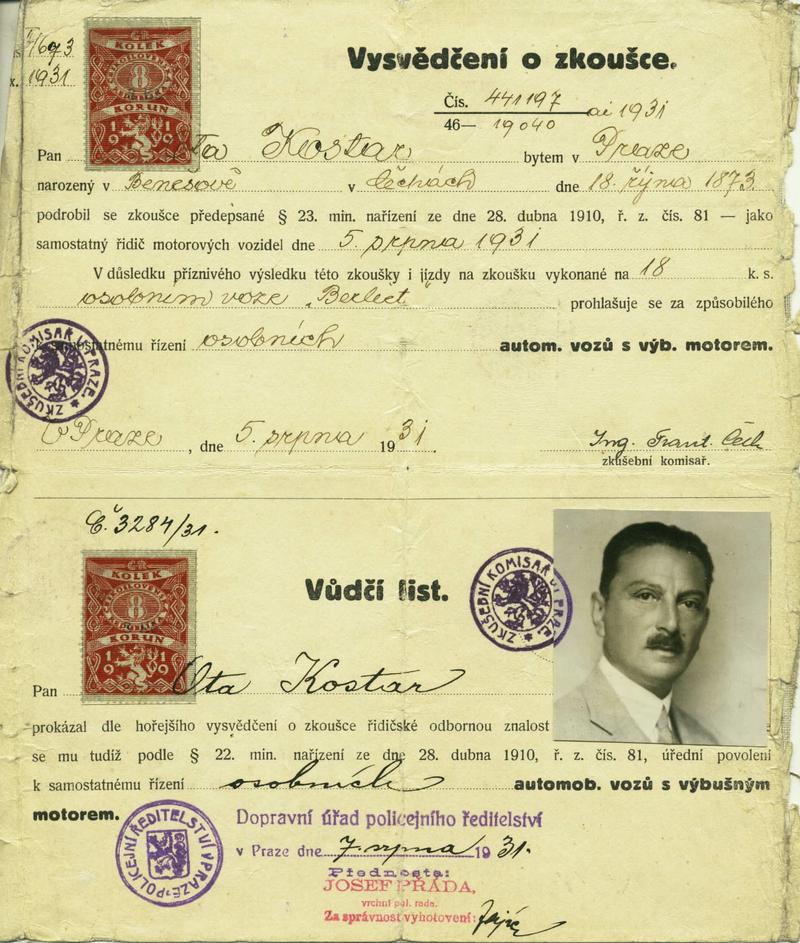 1931
KOLEK
8
KORUN
1919
Vysvědčení o zkoušce.
Čís. 441197 ai 1931
46— 19040
Pan Ota Kostar bytem v Praze
narozený v Benešově v Čechách dne 18. října 1873.
podrobil se zkoušce předepsané § 23. min. nařízení ze dne 28. dubna 1910, ř. z. čís. 81 — jako
samostatný řidič motorových vozidel dne 5. srpna 1931
V důsledku příznivého výsledku této zkoušky i jízdy na zkoušku vykonané na 18 k. s.
osobním voze „Berliet prohlašuje se za způsobilého
samostatnému řízení osobních autom. vozů s výb. motorem.
ZKUŠEBNÍ KOMISAŘ V PRAZE
V Praze, dne 5. srpna 1931.
Ing. Frant. Čech
zkušební komisař.
Č. 3284/31.
KOLEK
8
KORUN
1919
Vůdčí list.
ZKUŠEBNÍ KOMISAŘ V PRAZE
Pan Ota Kostar
prokázal dle hořejšího vysvědčení o zkoušce řidičské odbornou znalost
se mu tudíž podle § 22. min. nařízení ze dne 28. dubna 1910, ř. z. čís. 81, úřední povolení
k samostatnému řízení osobních automob. vozů s výbušným
motorem.
POLICEJNÍ ŘEDITELSTVÍ V PRAZE
Dopravní úřad policejního ředitelství
v Praze dne 7. srpna 1931.
Přednosta:
JOSEF PRÁDA,
vrchní pol. rada.
Za správnost vyhotovení: